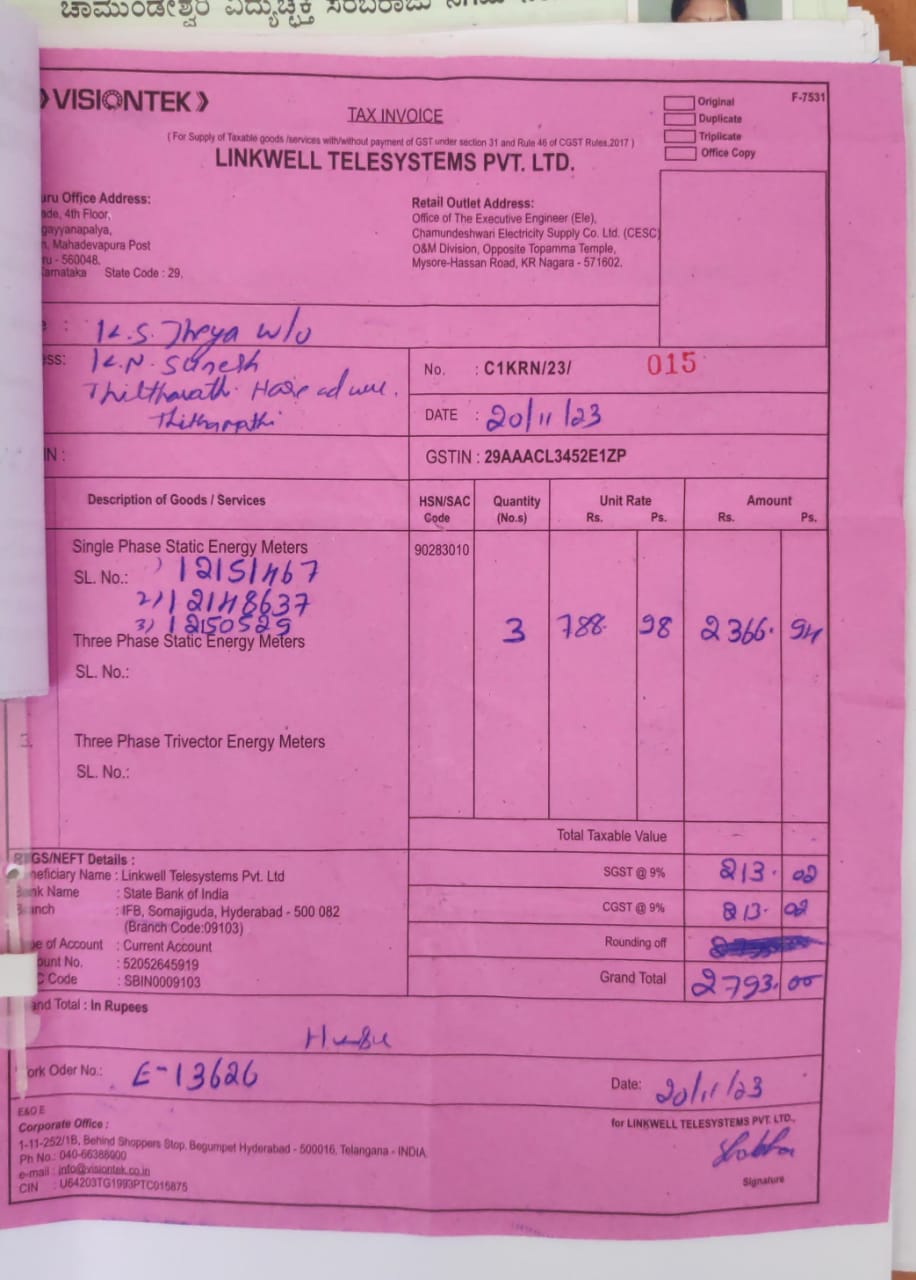 ಚಾಮುಂಡೇಶ್ವರಿ ವಿದ್ಯುಚ್ಛಕ್ತಿ ಸರಬರಾಜು ನಿಗಮ
VISIONTEK
TAX INVOICE
Original
Duplicate
Triplicate
Office Copy
F-7531
( For Supply of Taxable goods /services with/without payment of GST under section 31 and Rule 46 of CGST Rules.2017 )
LINKWELL TELESYSTEMS PVT. LTD.
uru Office Address:
ade, 4th Floor,
gayyanapalya,
n, Mahadevapura Post
ru - 560048.
arnataka State Code : 29.
Retail Outlet Address:
Office of The Executive Engineer (Ele),
Chamundeshwari Electricity Supply Co. Ltd. (CESC)
O&M Division, Opposite Topamma Temple,
Mysore-Hassan Road, KR Nagara - 571602.
: K.S. w/o
ess: K.N. Suresh
No. : C1KRN/23/ 015
DATE : 20/11/23
IN :
GSTIN : 29AAACL3452E1ZP
Description of Goods / Services HSN/SAC Code Quantity (No.s) Unit Rate Rs. Ps. Amount Rs. Ps.
Single Phase Static Energy Meters 90283010
SL. No.: 1) 12151467
2) 12148637
3) 12150529
3 788. 98 2366. 94
Three Phase Static Energy Meters
SL. No.:
3. Three Phase Trivector Energy Meters
SL. No.:
Total Taxable Value
SGST @ 9% 213. 02
CGST @ 9% 213. 02
Rounding off
Grand Total 2793. 00
RTGS/NEFT Details :
neficiary Name : Linkwell Telesystems Pvt. Ltd
Bank Name : State Bank of India
Branch : IFB, Somajiguda, Hyderabad - 500 082
(Branch Code:09103)
pe of Account : Current Account
ount No. : 52052645919
C Code : SBIN0009103
and Total : In Rupees
ork Oder No.: E-13626
Date: 20/11/23
E&O E
Corporate Office :
1-11-252/1B, Behind Shoppers Stop, Begumpet Hyderabad - 500016, Telangana - INDIA.
Ph No.: 040-66388000
e-mail : info@visiontek.co.in
CIN : U64203TG1993PTC015875
for LINKWELL TELESYSTEMS PVT. LTD.,
Signature